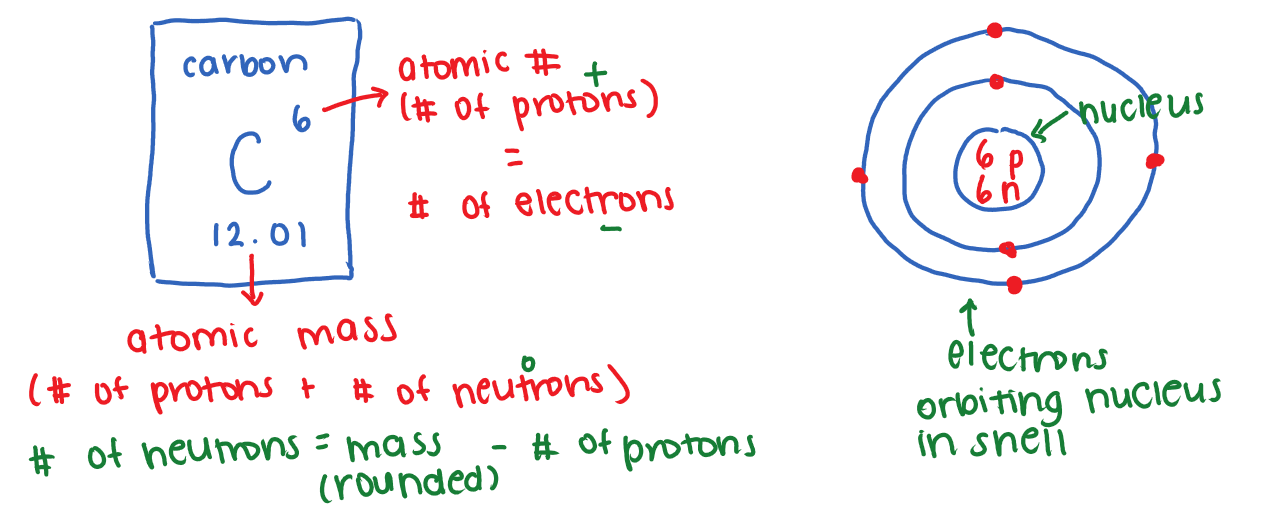 carbon
6
C
12.01
atomic # +
(# of protons)
=
# of electrons
-
atomic mass
(# of protons + # of neutrons)
0
# of neutrons = mass - # of protons
(rounded)
nucleus
6 p
6 n
electrons
orbiting nucleus
in shell